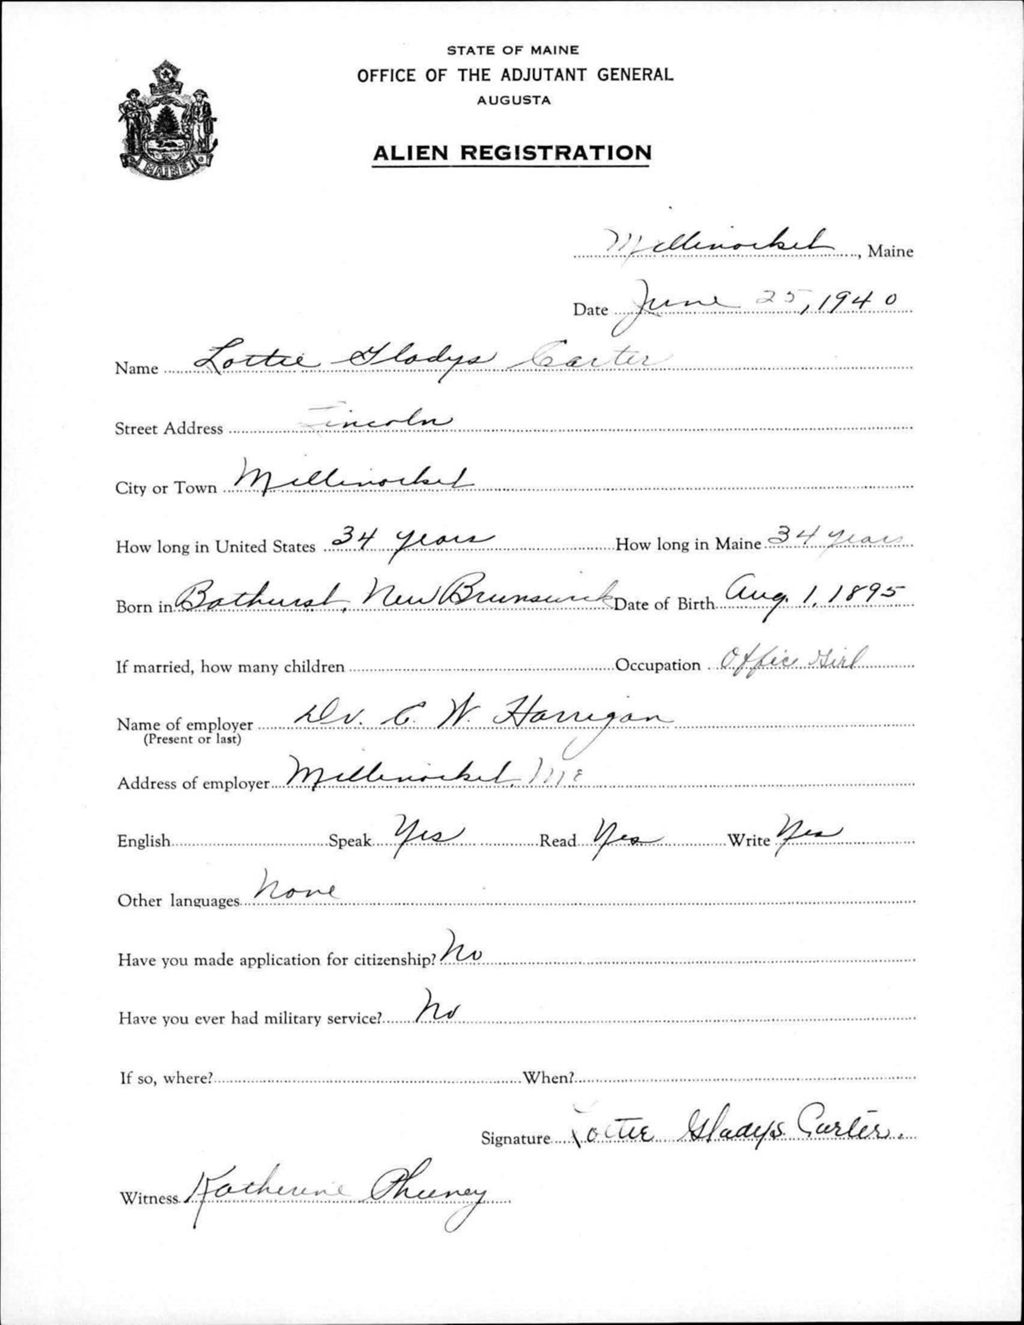 STATE OF MAINE
OFFICE OF THE ADJUTANT GENERAL
AUGUSTA
ALIEN REGISTRATION
MAINE
Millinocket, Maine
Date June 25, 1940
Name Lottie Gladys Carter
Street Address Lincoln
City or Town Millinocket
How long in United States 34 years How long in Maine 34 years
Born in Bathurst, New Brunswick Date of Birth Aug. 1, 1895
If married, how many children Occupation Office Girl
Name of employer Dr. C. W. Harrigan
(Present or last)
Address of employer Millinocket, ME
English Speak Yes Read Yes Write Yes
Other languages None
Have you made application for citizenship? No
Have you ever had military service? No
If so, where? When?
Signature Lottie Gladys Carter.
Witness Katherine Pheeney